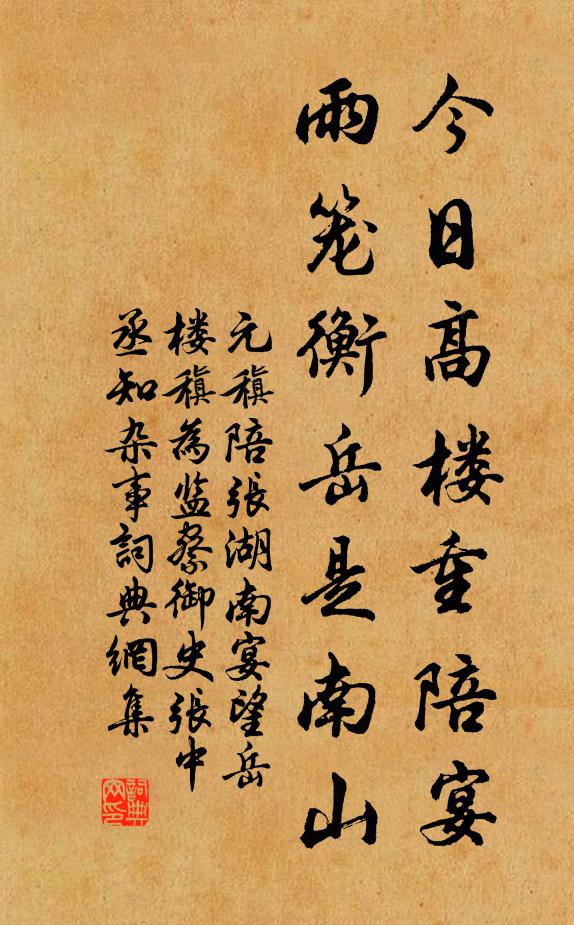 今日高楼重陪宴
雨笼衡岳是南山
元稹陪张湖南宴望岳
楼稹為监察御史张中
丞知杂事詞典網集
詞典
网印